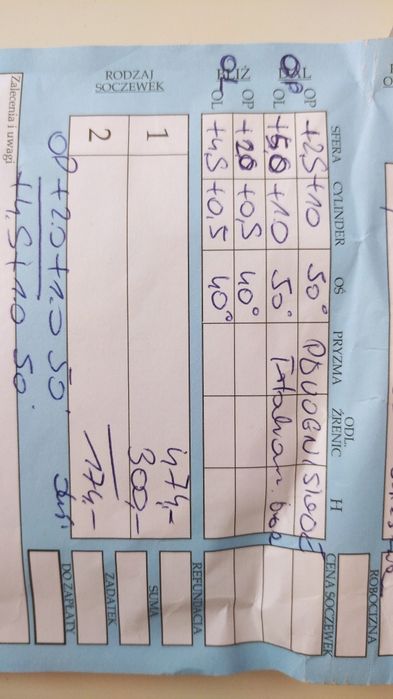 ROBOCIZNA
SFERA CYLINDER OŚ PRYZMA ODL. ŹRENIC H CENA SOCZEWEK
DAL OP +2,5 +1,0 50°
OL +5,0 +1,0 50°
BLIŻ OP +2,0 +0,5 40°
OL +4,5 +0,5 40°
RODZAJ SOCZEWEK
1
2
474,-
300,-
174,-
REFUNDACJA
SUMA
ZADATEK
DO ZAPŁATY
OP +2.0 +1.0 50
+4,5 +1.0 50
Zalecenia i uwagi